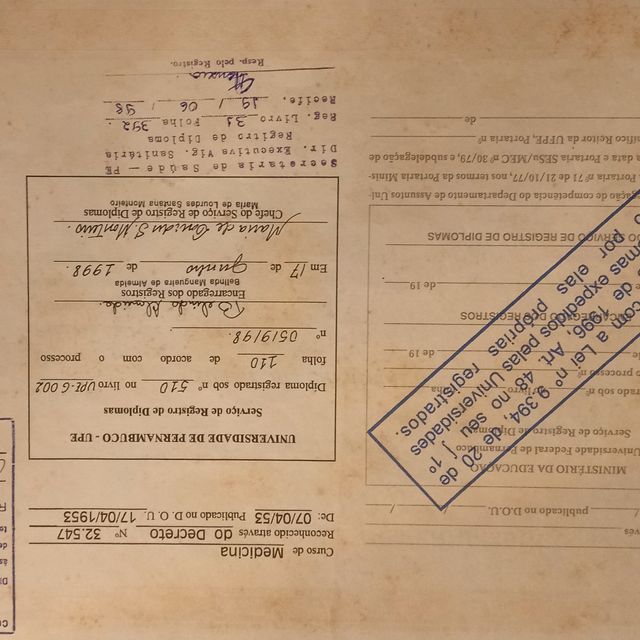 Curso de Medicina
Reconhecido através do Decreto Nº 32.547
De: 07/04/53 Publicado no D.O.U. 17/04/1953
UNIVERSIDADE DE PERNAMBUCO - UPE
Serviço de Registro de Diplomas
Diploma registrado sob nº 510 no livro UPE-G 002
folha 110 de acordo com o processo
nº 0519/98.
Belinda Almeida.
Encarregado dos Registros
Belinda Mangueira de Almeida
Em 17 de Junho de 1998.
Maria de Lourdes S. Monteiro.
Chefe do Serviço de Registro de Diplomas
Maria de Lourdes Santana Monteiro
Secretaria de Saúde - PE
Dir. Executiva Vig. Sanitária
Registro de Diploma
Reg. Livro 31 Folha 392.
Recife, 19 / 06 / 98
Resp. pelo Registro.
publicado no D.O.U.
MINISTÉRIO DA EDUCAÇÃO
Universidade Federal de Pernambuco
Serviço de Registro de
de 19
DO SERVIÇO DE REGISTRO DE DIPLOMAS
de 19
gação de competência do Departamento de Assuntos Uni-
Portaria nº 71 de 21/10/77, nos termos da Portaria Minis-
data e Portaria SESu/MEC nº 30/79, e subdelegação de
nífico Reitor da UFPE, Portaria nº
de
com a Lei nº 9.394, de 20 de
de 1996, Art. 48 no seu § 1º
mas expedidos pelas Universidades
por elas próprias registrados.